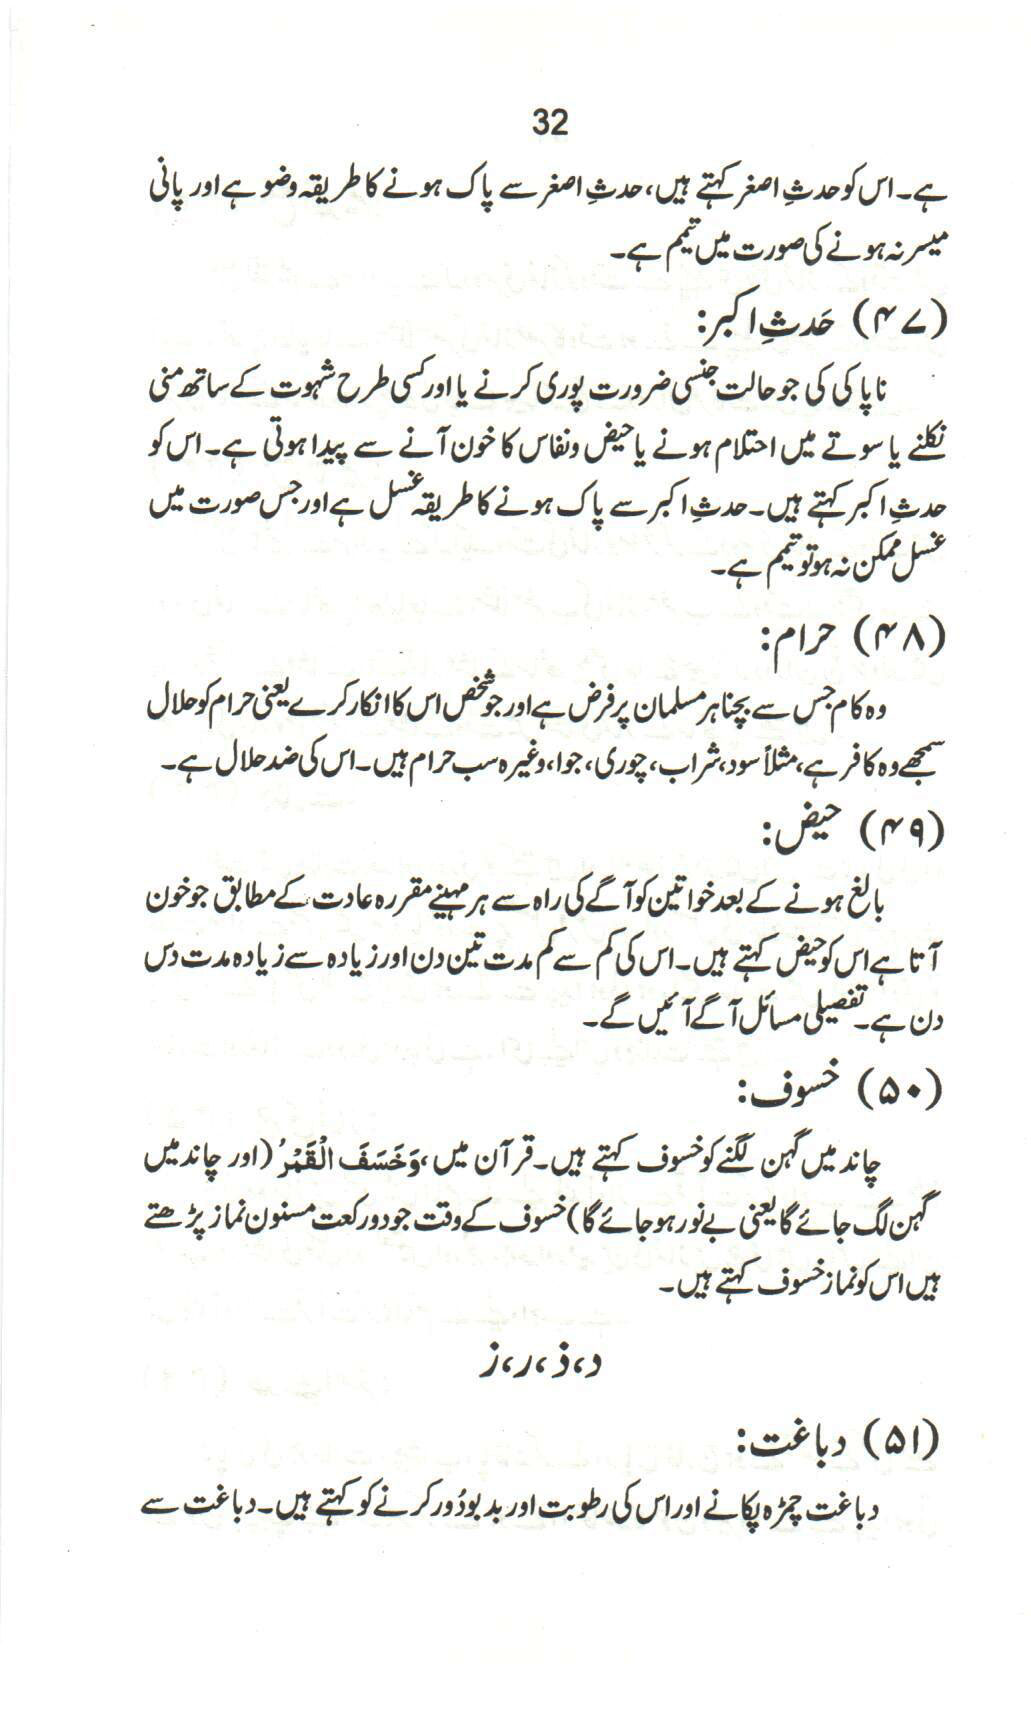 32
ہے۔ اس کو حدثِ اصغر کہتے ہیں، حدثِ اصغر سے پاک ہونے کا طریقہ وضو ہے اور پانی
میسر نہ ہونے کی صورت میں تیمم ہے۔
(۴۷) حَدثِ اکبر:
ناپاکی کی جو حالت جنسی ضرورت پوری کرنے یا اور کسی طرح شہوت کے ساتھ منی
نکلنے یا سوتے میں احتلام ہونے یا حیض ونفاس کا خون آنے سے پیدا ہوتی ہے۔ اس کو
حدثِ اکبر کہتے ہیں۔ حدثِ اکبر سے پاک ہونے کا طریقہ غسل ہے اور جس صورت میں
غسل ممکن نہ ہو تو تیمم ہے۔
(۴۸) حرام:
وہ کام جس سے بچنا ہر مسلمان پر فرض ہے اور جو شخص اس کا انکار کرے یعنی حرام کو حلال
سمجھے وہ کافر ہے، مثلاً سود، شراب، چوری، جوا، وغیرہ سب حرام ہیں۔ اس کی ضد حلال ہے۔
(۴۹) حیض:
بالغ ہونے کے بعد خواتین کو آگے کی راہ سے ہر مہینے مقررہ عادت کے مطابق جو خون
آتا ہے اس کو حیض کہتے ہیں۔ اس کی کم سے کم مدت تین دن اور زیادہ سے زیادہ مدت دس
دن ہے۔ تفصیلی مسائل آگے آئیں گے۔
(۵۰) خسوف:
چاند میں گہن لگنے کو خسوف کہتے ہیں۔ قرآن میں، وَخَسَفَ الْقَمَرُ (اور چاند میں
گہن لگ جائے گا یعنی بے نور ہو جائے گا) خسوف کے وقت جو دو رکعت مسنون نماز پڑھتے
ہیں اس کو نماز خسوف کہتے ہیں۔
د، ذ، ر، ز
(۵۱) دباغت:
دباغت چمڑہ پکانے اور اس کی رطوبت اور بدبو دُور کرنے کو کہتے ہیں۔ دباغت سے